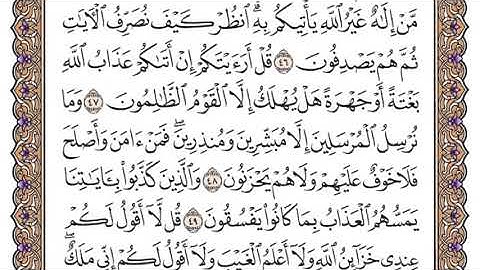 مَّنْ إِلَٰهٌ غَيْرُ ٱللَّهِ يَأْتِيكُم بِهِ ۗ ٱنظُرْ كَيْفَ نُصَرِّفُ ٱلْـَٔايَٰتِ
ثُمَّ هُمْ يَصْدِفُونَ ٤٦ قُلْ أَرَءَيْتَكُمْ إِنْ أَتَىٰكُمْ عَذَابُ ٱللَّهِ
بَغْتَةً أَوْ جَهْرَةً هَلْ يُهْلَكُ إِلَّا ٱلْقَوْمُ ٱلظَّٰلِمُونَ ٤٧ وَمَا
نُرْسِلُ ٱلْمُرْسَلِينَ إِلَّا مُبَشِّرِينَ وَمُنذِرِينَ ۖ فَمَنْ ءَامَنَ وَأَصْلَحَ
فَلَا خَوْفٌ عَلَيْهِمْ وَلَا هُمْ يَحْزَنُونَ ٤٨ وَٱلَّذِينَ كَذَّبُوا۟ بِـَٔايَٰتِنَا
يَمَسُّهُمُ ٱلْعَذَابُ بِمَا كَانُوا۟ يَفْسُقُونَ ٤٩ قُل لَّآ أَقُولُ لَكُمْ
عِندِى خَزَآئِنُ ٱللَّهِ وَلَآ أَعْلَمُ ٱلْغَيْبَ وَلَآ أَقُولُ لَكُمْ إِنِّى مَلَكٌ ۖ